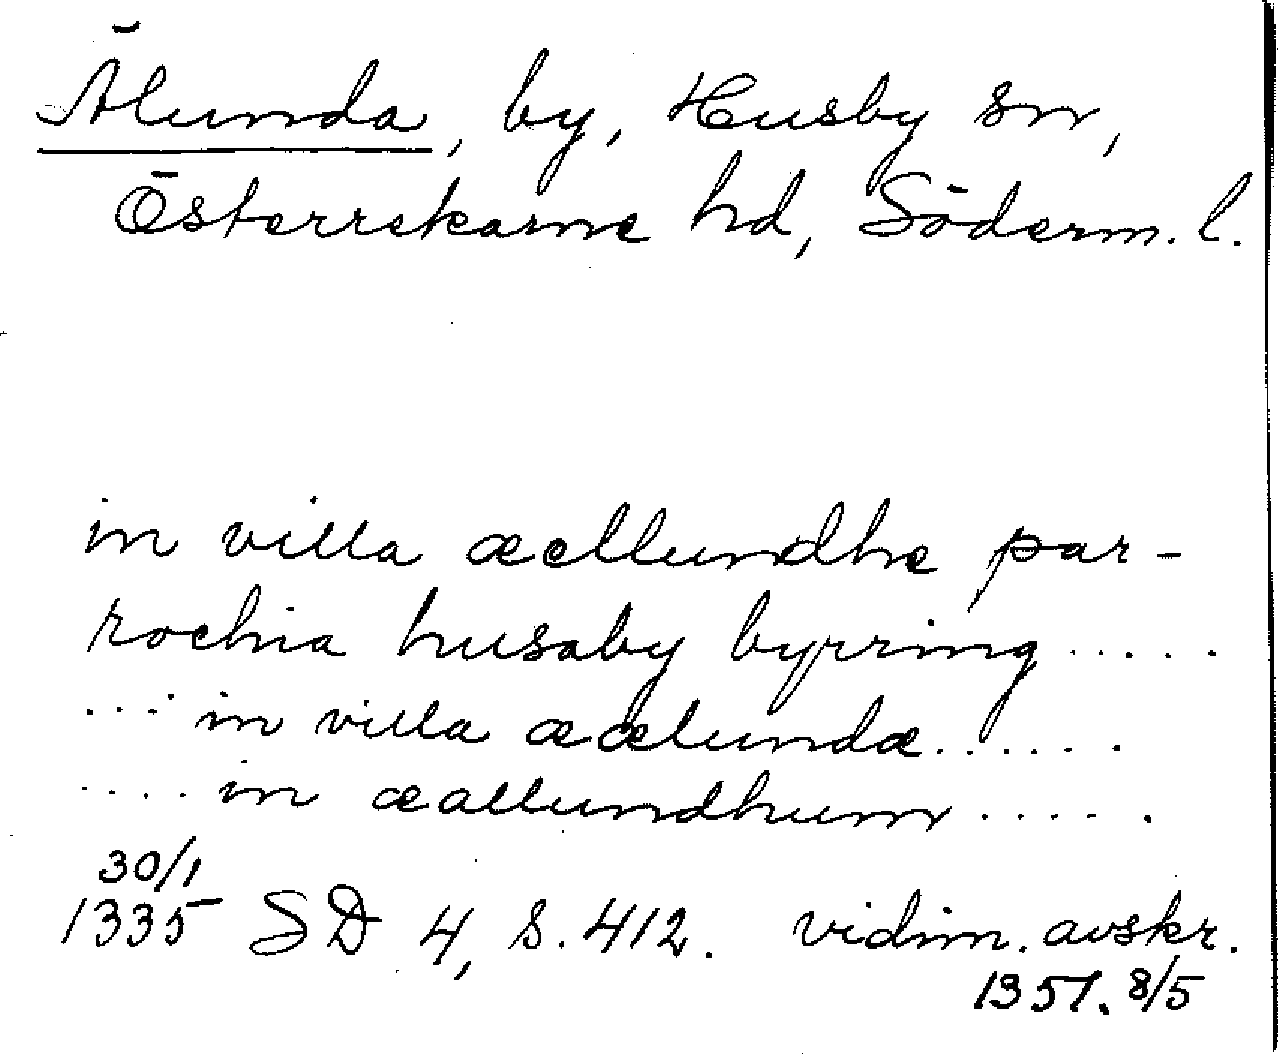 Älunda, by, Husby sn,
Österrekarne hd, Söderm. l.
in villa æellundhe par-
rochia husaby byrring .....
.... in villa æælundæ ......
.... in æallundhum .....
30/1
1335 SD 4, s. 412. vidim. avskr.
1351. 8/5